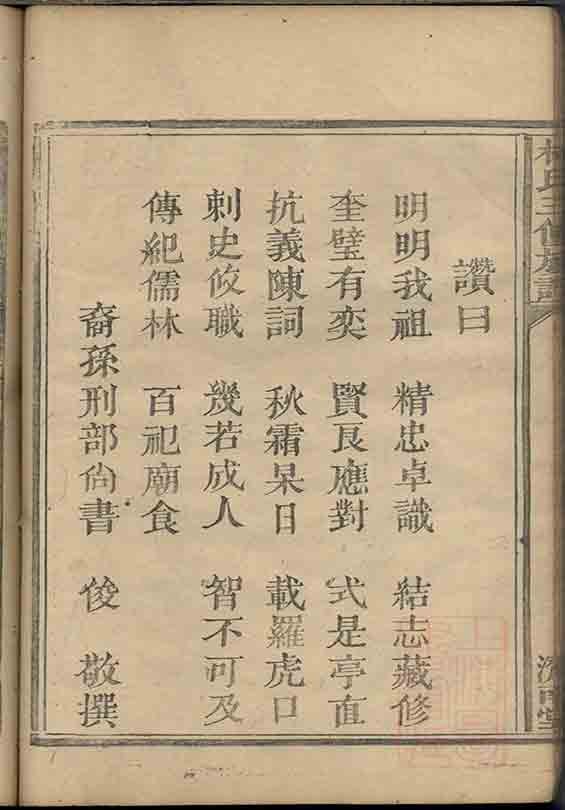 林氏三修族譜
讚曰
明明我祖　精忠卓識　結志藏修
奎璧有奕　賢良應對　式是亭直
抗義陳詞　秋霜杲日　載羅虎口
刺史攸職　幾若成人　智不可及
傳紀儒林　百祀廟食
裔孫刑部尙書　俊　敬撰